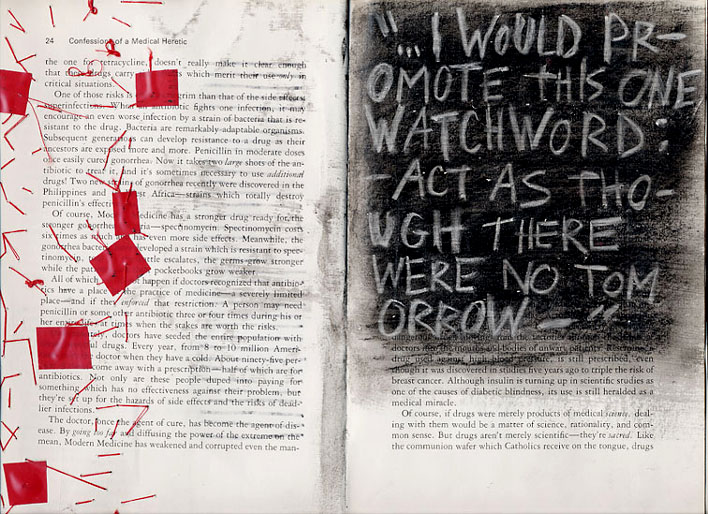 24 Confessions of a Medical Heretic
the one for tetracycline, doesn't really make it clear enough
that these drugs carry which merit their use only in
critical situations.
One of those risks is grim than that of the side effects:
superinfections. When an antibiotic fights one infection, it may
encourage an even worse infection by a strain of bacteria that is re-
sistant to the drug. Bacteria are remarkably adaptable organisms.
Subsequent generations can develop resistance to a drug as their
ancestors are exposed more and more. Penicillin in moderate doses
once easily cured gonorrhea. Now it takes two large shots of the an-
tibiotic to treat it, and it's sometimes necessary to use additional
drugs! Two new strains of gonorrhea recently were discovered in the
Philippines and West Africa—strains which totally destroy
penicillin's effecti
Of course, Modern Medicine has a stronger drug ready for the
stronger gonorrhea bacteria—spectinomycin. Spectinomycin costs
six times as much and has even more side effects. Meanwhile, the
gonorrhea bacteria developed a strain which is resistant to spec-
tinomycin. battle escalates, the germs grow stronger
while the patients pocketbooks grow weaker.
All of which not happen if doctors recognized that antibio-
tics have a place in the practice of medicine—a severely limited
place—and if they enforced that restriction. A person may need
penicillin or some other antibiotic three or four times during his or
her entire life at times when the stakes are worth the risks.
doctors have seeded the entire population with
drugs. Every year, from 8 to 10 million Ameri-
doctor when they have a cold. About ninety-five per-
come away with a prescription—half of which are for
antibiotics. Not only are these people duped into paying for
something which has no effectiveness against their problem, but
they're set up for the hazards of side effects and the risks of dead-
lier infections.
The doctor, once the agent of cure, has become the agent of dis-
ease. By going too far and diffusing the power of the extreme on the
mean, Modern Medicine has weakened and corrupted even the man-
"... I WOULD PR-
OMOTE THIS ONE
WATCHWORD:
- ACT AS THO-
UGH THERE
WERE NO TOM
ORROW "
doctors and bodies of unwary patients. Reserpine,
drug used against high blood pressure, is still prescribed, even
though it was discovered in studies five years ago to triple the risk of
breast cancer. Although insulin is turning up in scientific studies as
one of the causes of diabetic blindness, its use is still heralded as a
medical miracle.
Of course, if drugs were merely products of medical science, deal-
ing with them would be a matter of science, rationality, and com-
mon sense. But drugs aren't merely scientific—they're sacred. Like
the communion wafer which Catholics receive on the tongue, drugs